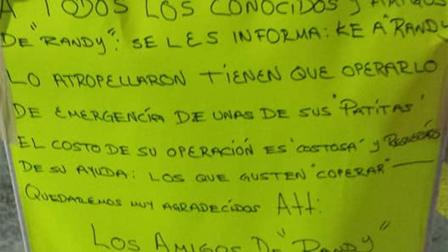 A TODOS LOS CONOCIDOS Y AMIGOS
DE "RANDY": SE LES INFORMA: KE A "RANDY
LO ATROPELLARON TIENEN QUE OPERARLO
DE EMERGENCIA DE UNAS DE SUS "PATITAS"
EL COSTO DE SU OPERACIÓN ES "COSTOSA" Y
DE SU AYUDA: LOS QUE GUSTEN "COPERAR"
QUEDAREMOS MUY AGRADECIDOS ATT:
LOS AMIGOS DE "RANDY"